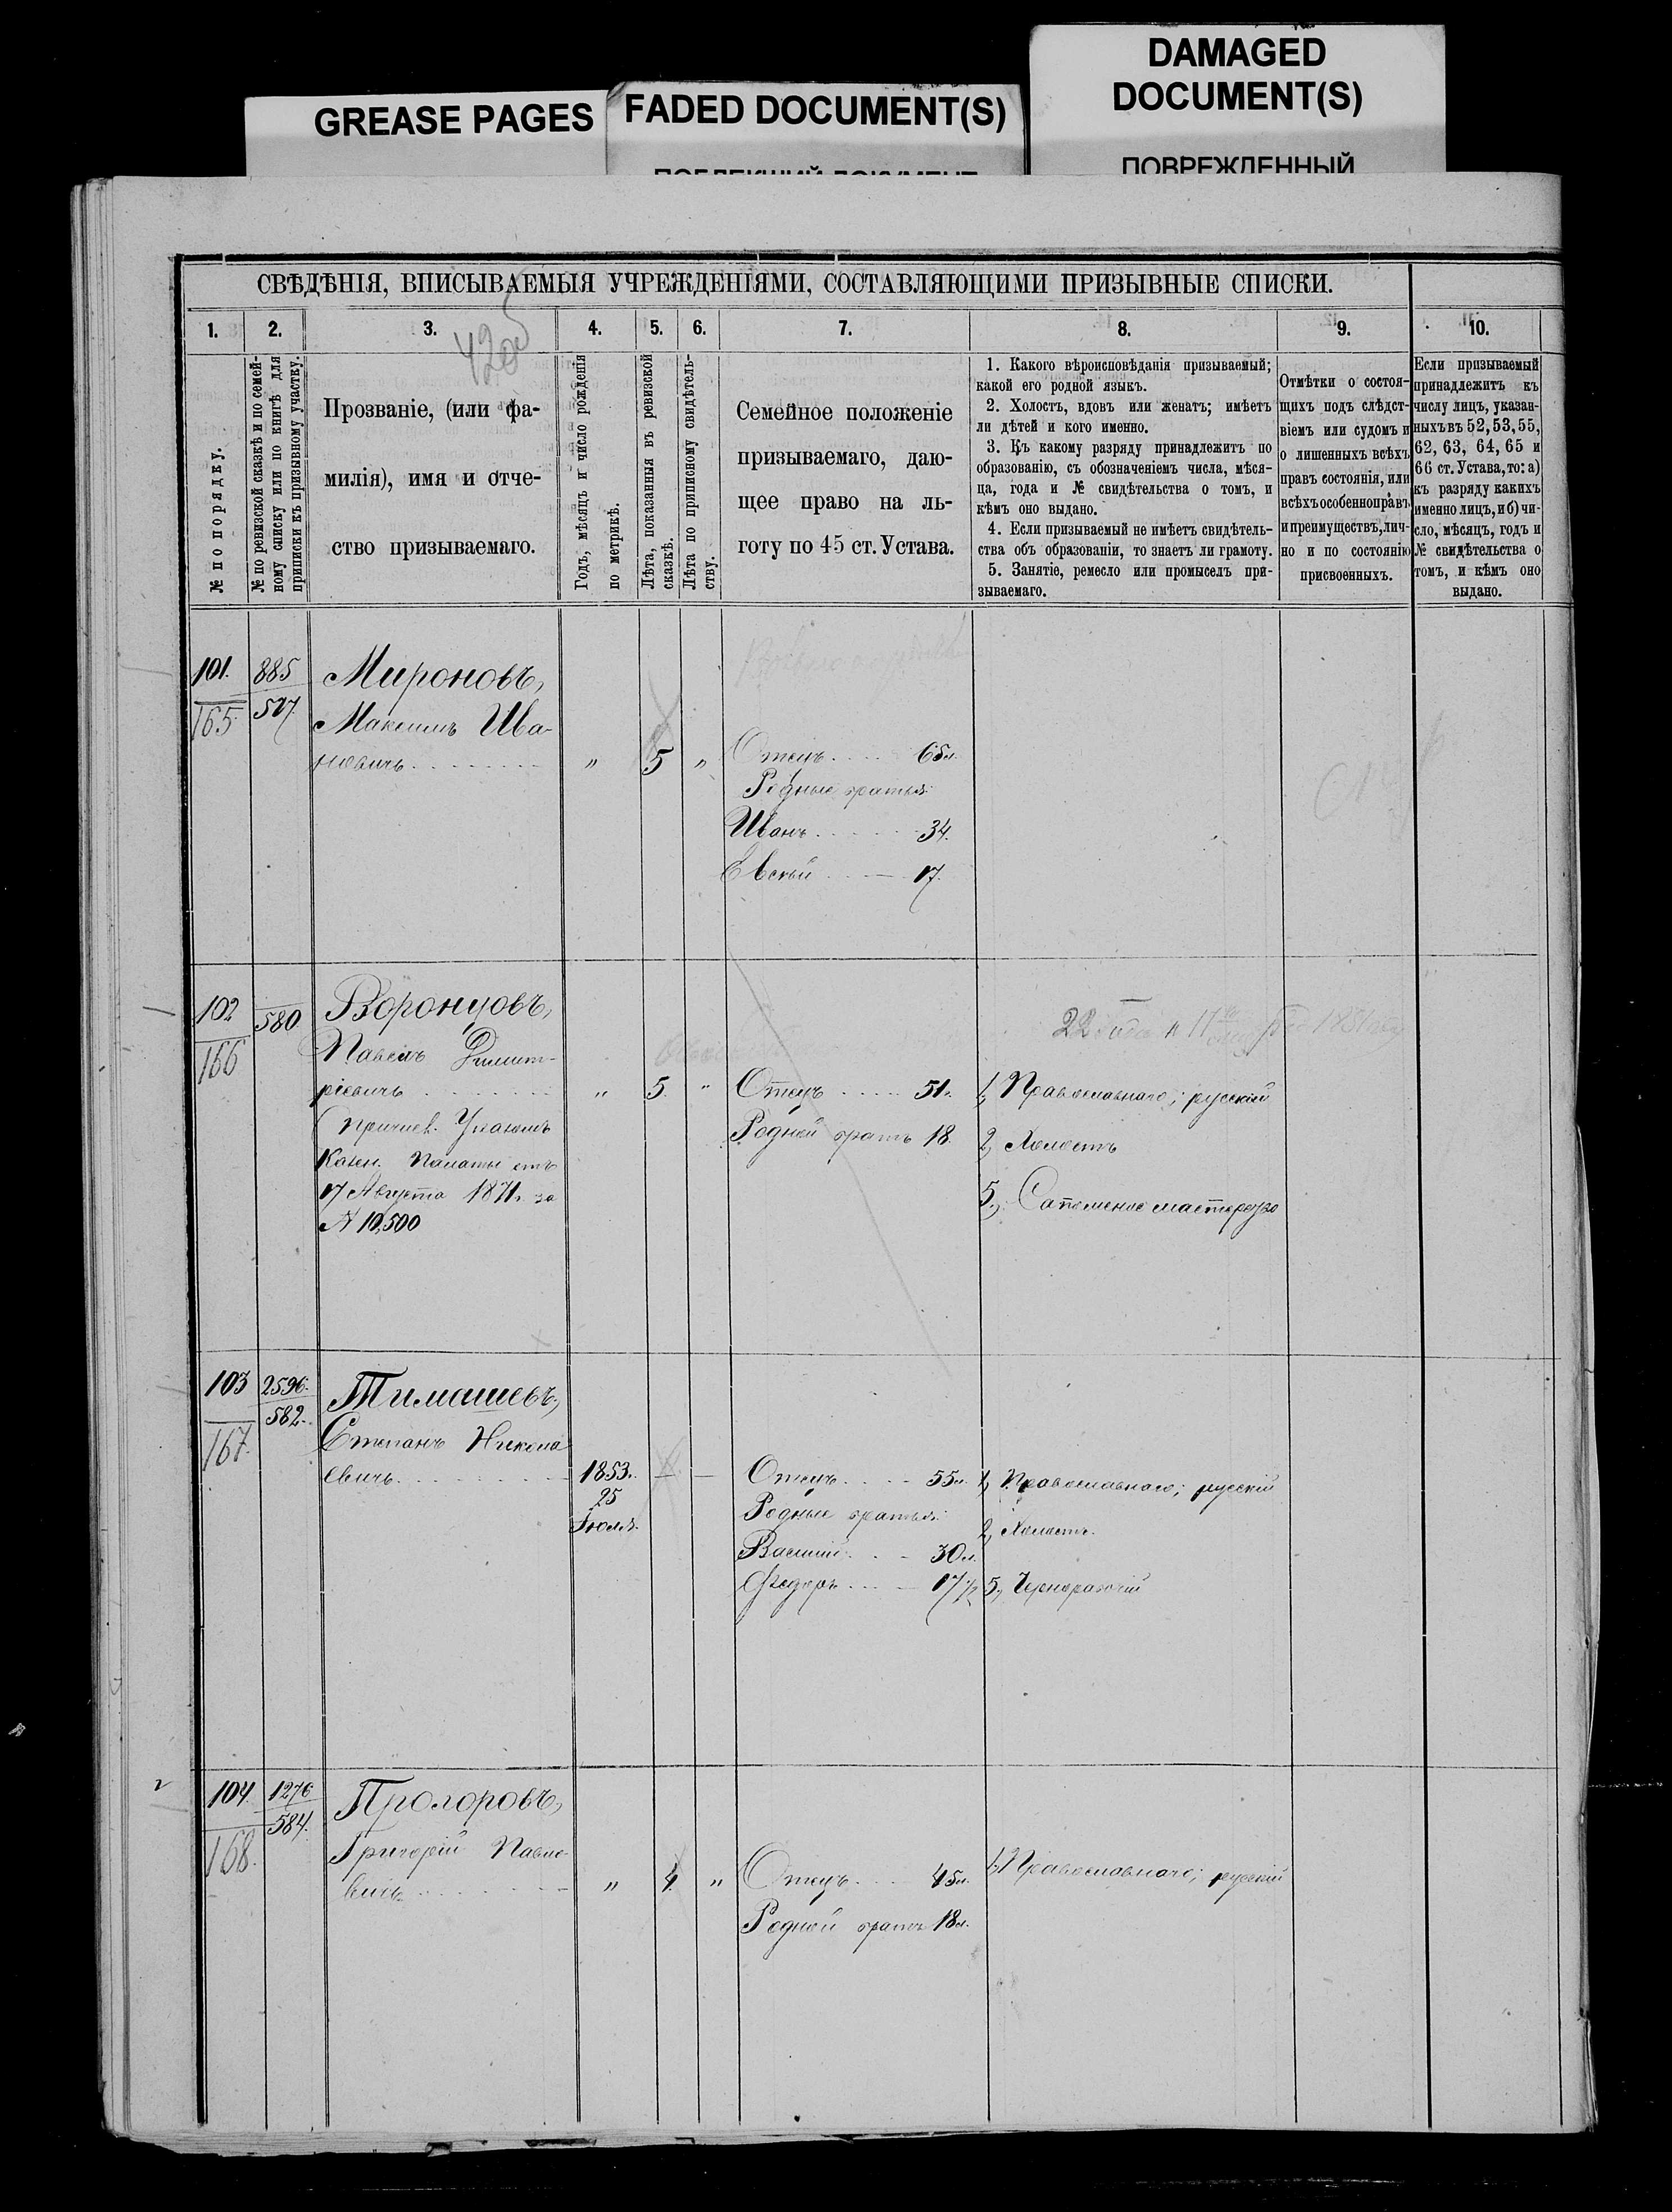 GREASE PAGES
FADED DOCUMENT(S)
DAMAGED
DOCUMENT(S)
ПОБЛЕКШИЙ ДОКУМЕНТ
ПОВРЕЖДЕННЫЙ
СВѢДѢНІЯ, ВПИСЫВАЕМЫЯ УЧРЕЖДЕНІЯМИ, СОСТАВЛЯЮЩИМИ ПРИЗЫВНЫЕ СПИСКИ.
1. 2. 3. 4. 5. 6. 7. 8. 9. 10.
№ по порядку.
№ по ревизской сказкѣ и по семей-
ному списку или по книгѣ для
приписки къ призывному участку.
Прозваніе, (или фа-
милія), имя и отче-
ство призываемаго.
Годъ, мѣсяцъ и число рожденія
по метрикѣ.
Лѣта, показанныя въ ревизской
сказкѣ.
Лѣта по приписному свидѣтель-
ству.
Семейное положеніе
призываемаго, даю-
щее право на ль-
готу по 45 ст. Устава.
1. Какого вѣроисповѣданія призываемый;
какой его родной языкъ.
2. Холостъ, вдовъ или женатъ; имѣетъ
ли дѣтей и кого именно.
3. Къ какому разряду принадлежитъ по
образованію, съ обозначеніемъ числа, мѣся-
ца, года и № свидѣтельства о томъ, и
кѣмъ оно выдано.
4. Если призываемый не имѣетъ свидѣтель-
ства объ образованіи, то знаетъ ли грамоту.
5. Занятіе, ремесло или промыселъ при-
зываемаго.
Отмѣтки о состоя-
щихъ подъ слѣдст-
віемъ или судомъ и
о лишенныхъ всѣхъ
правъ состоянія, или
всѣхъ особенноправъ
и преимуществъ, лич-
но и по состоянію
присвоенныхъ.
Если призываемый
принадлежитъ къ
числу лицъ, указан-
ныхъ въ 52, 53, 55,
62, 63, 64, 65 и
66 ст. Устава, то: а)
къ разряду какихъ
именно лицъ, и б) чи-
сло, мѣсяцъ, годъ и
№ свидѣтельства о
томъ, и кѣмъ оно
выдано.
101. 885 Мироновъ,
165. 527 Максимъ Ива-
новичъ " 5 " Отецъ 65л.
Родные братья:
Иванъ 34.
Евсѣй 17.
102 580 Воронцовъ,
166 Павелъ Димит-
ріевичъ " 5. " Отецъ 51л. 1, Православнаго; русскій
(причисл. Указомъ Родной братъ 18. 2, Холостъ
Казен. Палаты отъ
17 Августа 1871г. за 5,
№ 10,500
103 2596. Тимашевъ,
167. 582. Степанъ Никола
евичъ 1853г. — — Отецъ 55л. 1, Православнаго; русскій
25 Родные братья:
Іюля. 2, Холостъ.
Василій 30л.
Ѳедоръ 17½ 5, Чернорабочій
104 1276 Прохоровъ,
168. 584. Григорій Павло-
вичъ " 4. " Отецъ 45л. 1, Православнаго; русскій
Родной братъ 18л.